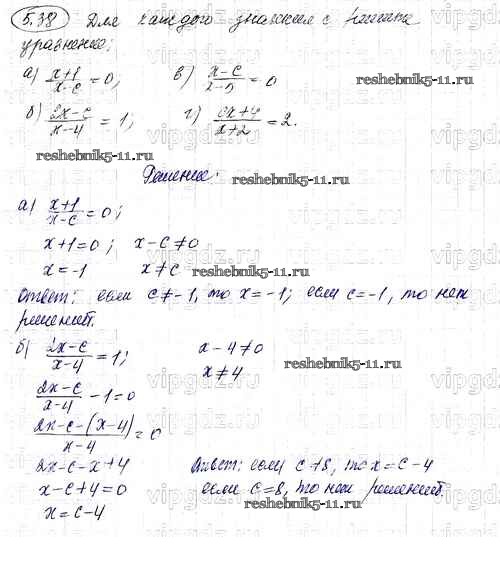 5.38 Для каждого значения с решите
уравнение:
а) x+1/x-c = 0; в) x-c/x-5 = 0
б) 2x-c/x-4 = 1; г) cx+4/x+2 = 2.
reshebnik5-11.ru
reshebnik5-11.ru
Решение:
reshebnik5-11.ru
а) x+1/x-c = 0;
x+1=0; x-c≠0
x=-1 x≠c
reshebnik5-11.ru
Ответ: если c≠-1, то x=-1; если c=-1, то нет
решений.
б) 2x-c/x-4 = 1; x-4≠0
x≠4
reshebnik5-11.ru
2x-c/x-4 -1=0
2x-c-(x-4)/x-4 = 0
2x-c-x+4 Ответ: если c≠8, то x=c-4
x-c+4=0 если c=8, то нет решений.
x=c-4
reshebnik5-11.ru